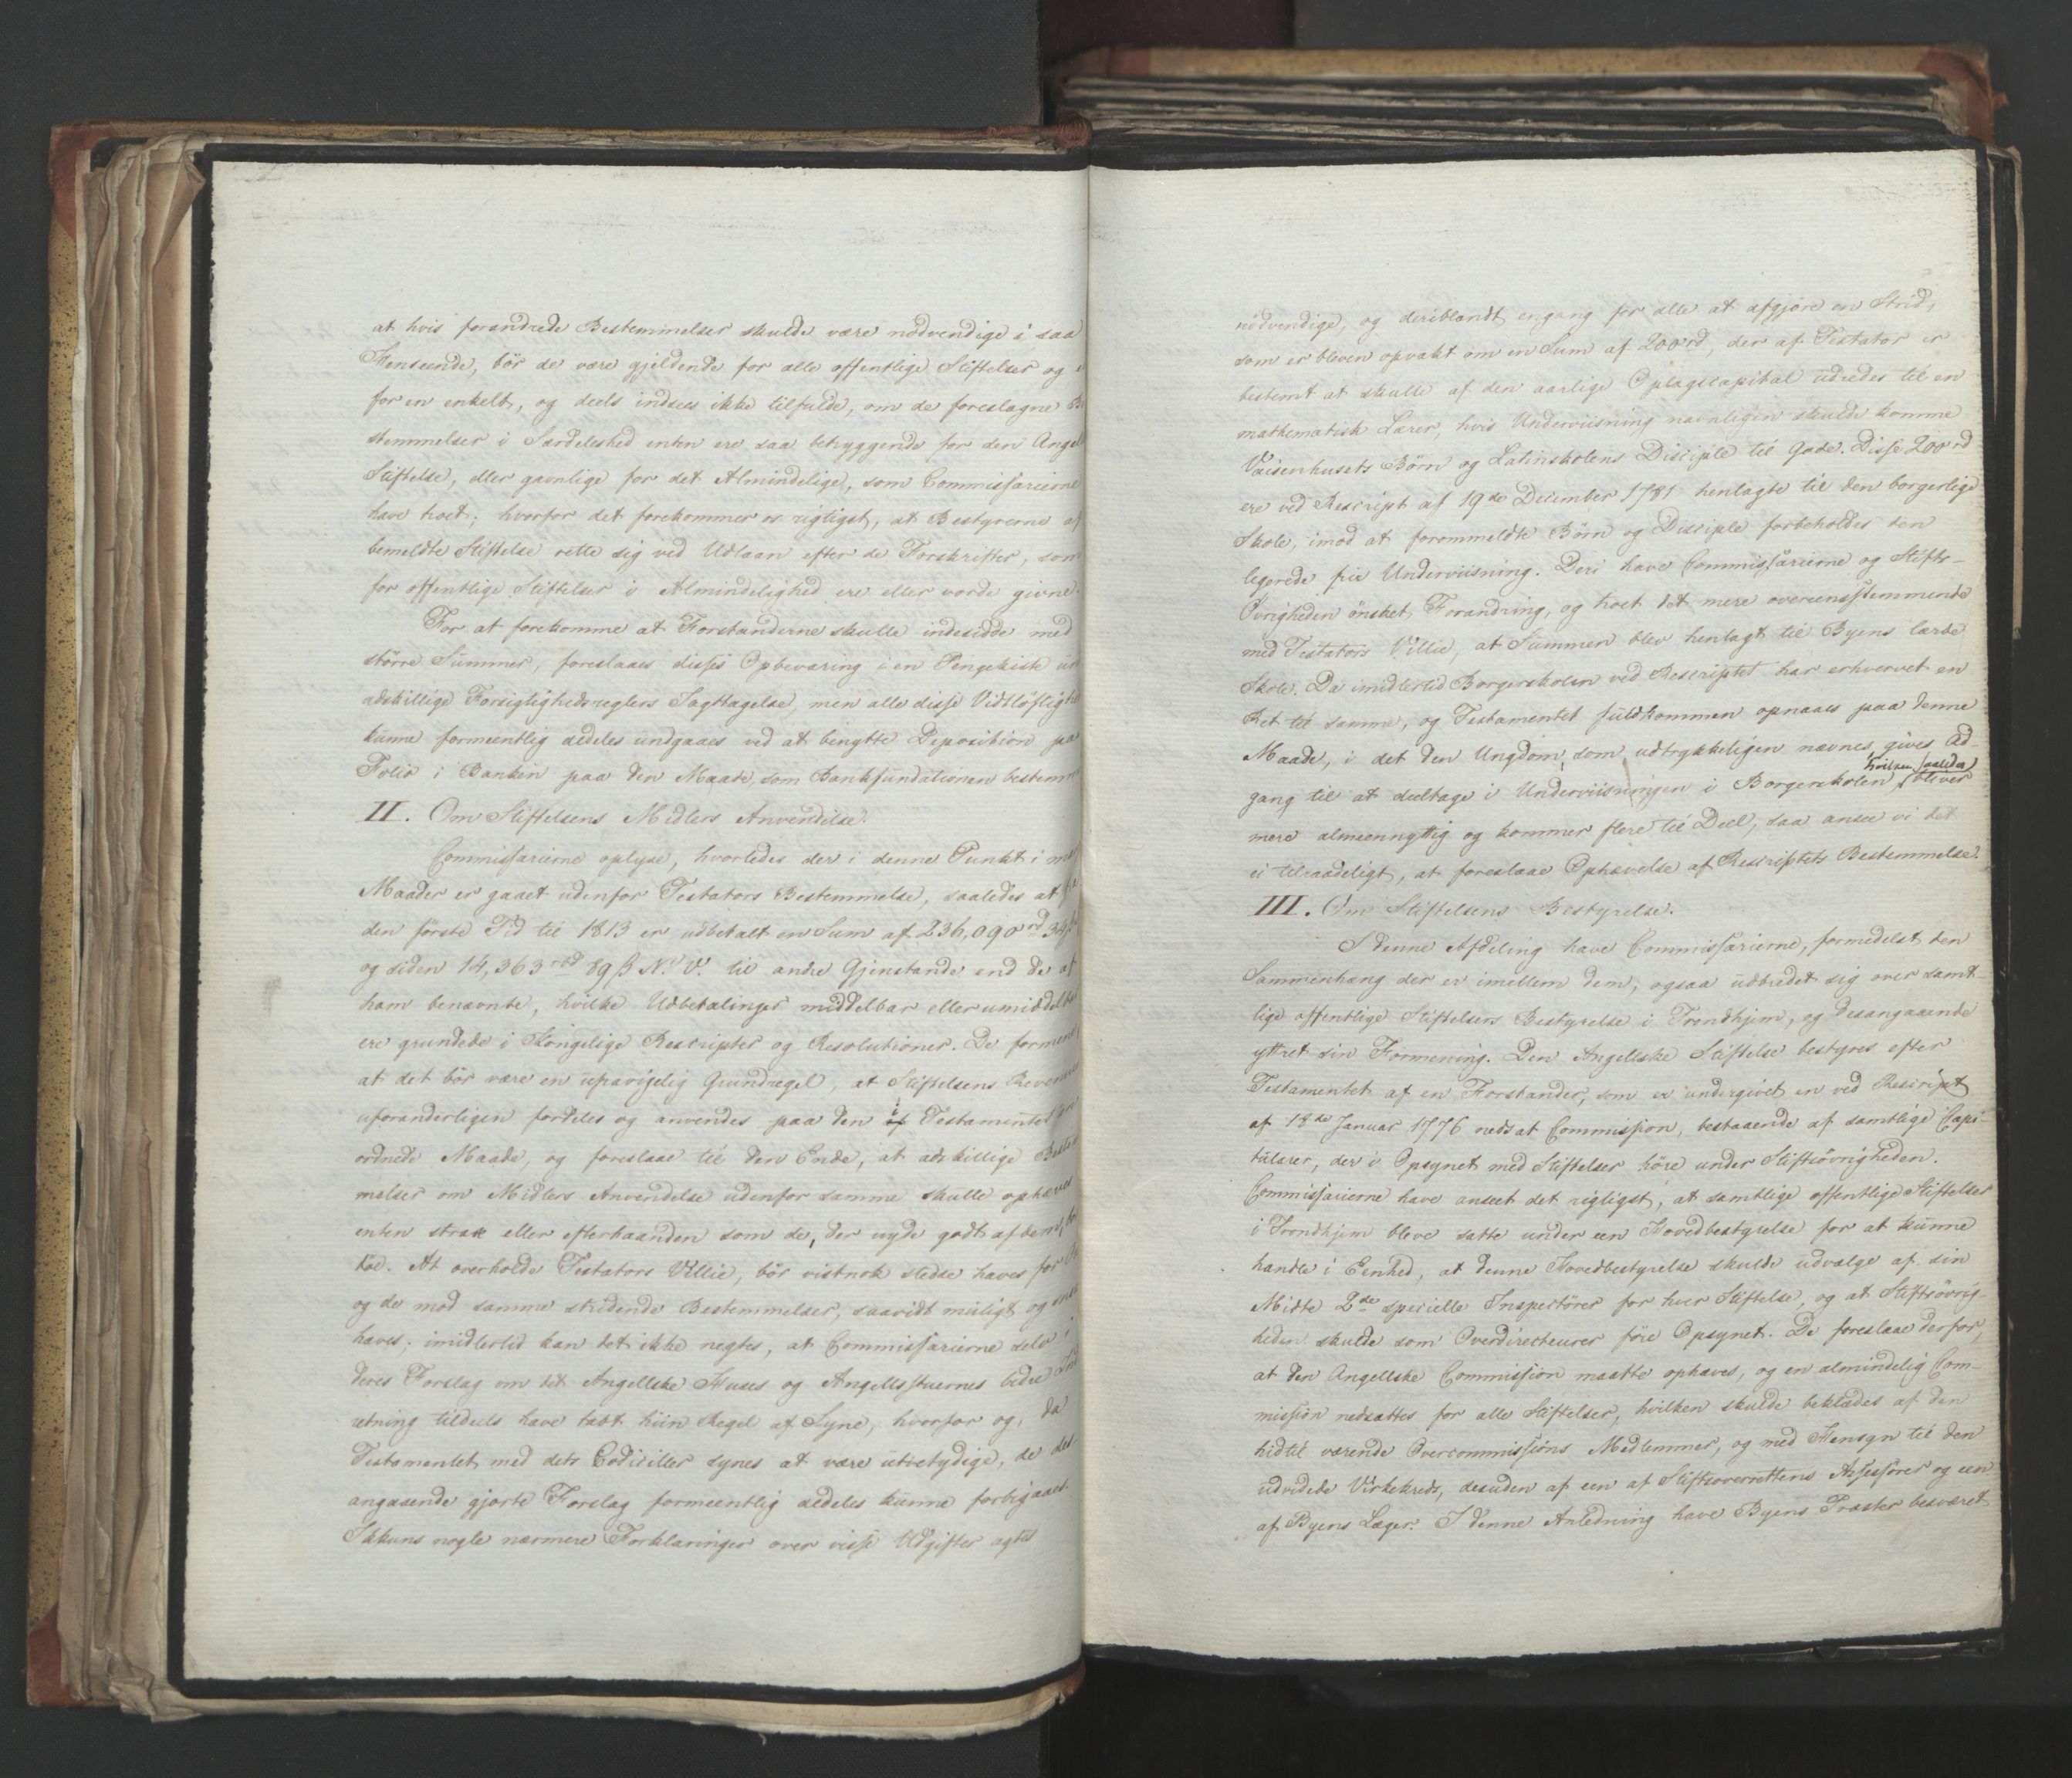 at hvis forandrede Bestemmelser skulde være nödvendige i saa
Henseende, bör de være gjeldende for alle offentlige Stiftelser og
for en enkelt, og deels indsees ikke tilfulde, om de foreslagne Be
stemmelser i Særdeleshed enten ere saa betryggende for den Angel
Stiftelse, eller gavnlige for det Almindelige, som Commissarierne
have troet; hvorfor det forekommer os rigtigst, at Bestyrerne af
bemeldte Stiftelse rette sig ved Udlaan efter de Forskrifter, som
for offentlige Stiftelser i Almindelighed ere eller vorde givne.
For at forekomme at Forstanderne skulle indesidde med
större Summer, foreslaaes disses Opbevaring i en Pengekiste un
adskillige Forsigtighedsreglers Iagttagelse, men alle disse Vidtlöftighe
kunne formeentlig aldeles undgaaes ved at benytte Deposition paa
Folio i Banken paa den Maade, som Bankfundationen bestemme
II. Om Stiftelsens Midlers Anvendelse.
Commissarierne oplyse, hvorledes der i denne Punkt i man
Maader er gaaet udenfor Testators Bestemmelse, saaledes at fra
den förste Tid til 1813 er udbetalt en Sum af 236,090 rd 34 ß
og siden 14,363 rbd 89 ß N.V. til andre Gjenstande end de af
ham benævnte, hvilke Udbetalinger middelbar eller umiddelba
ere grundede i Kongelige Rescripter og Resolutioner. De formene,
at det bör være en ufravigelig Grundregel, at Stiftelsens Revenue
uforanderligen fordeles og anvendes paa den i Testamentet for
ordnede Maade, og foreslaae til den Ende, at adskillige Bestem
melser om Midlers Anvendelse udenfor samme skulle ophæves
enten strax eller efterhaanden som de, der nyde godt af dem, bor
döe. At overholde Testators Villie, bör vistnok stedse haves for Öie
og de mod samme stridende Bestemmelser, saavidt muligt og
hæves; imidlertid kan det ikke negtes, at Commissarierne selv i
deres Forslag om det Angellske Huses og Angellsstuernes bedre Ind
retning tildeels have tabt hiin Regel af Syne, hvorfor og, da
Testamentet med dets Codiciller synes at være utvetydige, de det
angaaende gjorte Forslag formeentlig aldeles kunne forbigaaes.
Ikkuns nogle nærmere Forklaringer over visse Udgifter agtes
nödvendige, og deriblandt engang for alle at afgjöre en Strid,
som er bleven opvakt om en Sum af 200 rd, der af Testator er
bestemt at skulle af den aarlige Oplagscapital udredes til en
mathematisk Lærer, hvis Underviisning navnligen skulde komme
Vaisenhusets Börn og Latinskolens Disciple til Gode. Disse 200 rd
ere ved Rescript af 19de December 1781 henlagte til den borgerlige
Skole, imod at forommeldte Börn og Disciple forbeholdes den
legerede frie Underviisning. Deri have Commissarierne og Stifts-
Övrigheden önsket Forandring, og troet det mere overeensstemmende
med Testators Villie, at Summen blev henlagt til Byens lærde
Skole. Da imidlertid Borgerskolen ved Rescriptet har erhvervet en
Ret til samme, og Testamentet fuldkommen opnaaes paa denne
Maade, i det den Ungdom, som udtrykkeligen nævnes, gives Ad-
gang til at deeltage i Underviisningen i Borgerskolen, hvilken saaledes bliver
mere almeennyttig og kommer flere til Deel, saa ansee vi det
ei tilraadeligt, at foreslaae Ophævelse af Rescriptets Bestemmelse.
III. Om Stiftelsens Bestyrelse.
I denne Afdeling have Commissarierne, formedelst den
Sammenhæng der er imellem dem, ogsaa udbredet sig over samt-
lige offentlige Stiftelsers Bestyrelse i Trondhjem, og desangaaende
yttret sin Formening. Den Angellske Stiftelse bestyres efter
Testamentet af en Forstander, som er undergivet en ved Rescript
af 18de Januar 1776 nedsat Commission, bestaaende af samtlige Capi-
tularer, der i Opsynet med Stiftelser höre under Stiftsövrigheden.
Commissarierne have anseet det rigtigst, at samtlige offentlige Stiftelser
i Trondhjem bleve satte under een Hovedbestyrelse for at kunne
handle i Eenhed, at denne Hovedbestyrelse skulde udvælge af sin
Midte 2de specielle Inspecteurer for hver Stiftelse, og at Stiftsövrig-
heden skulde som Overdirecteurer före Opsynet. De foreslaae derfor,
at den Angellske Commission maatte ophæves, og en almindelig Com-
mission nedsættes for alle Stiftelser, hvilken skulde beklædes af den
hidtil værende Overcommissions Medlemmer, og med Hensyn til den
udvidede Virkekreds, desuden af een af Stiftsoverrettens Assessorer og een
af Byens Læger. I denne Anledning have Byens Præster besværet